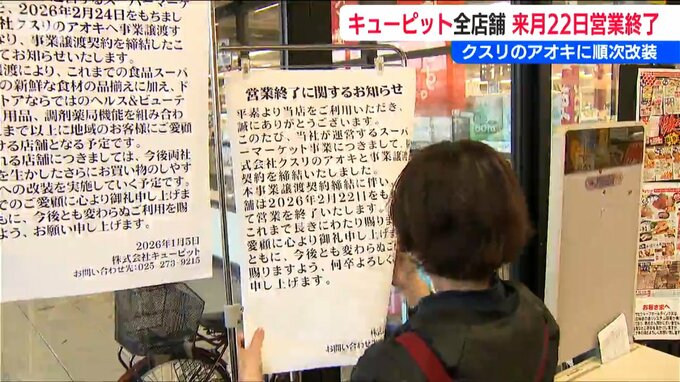 キューピット全店舗 来月22日営業終了
クスリのアオキに順次改装
、2026年2月24日をもちまし
社クスリのアオキへ事業譲渡す
なり、事業譲渡契約を締結したこ
てお知らせいたします。
譲渡により、これまでの食品スーパ
の新鮮な食材の品揃えに加え、ド
トアならではのヘルス&ビューテ
用品、調剤薬局機能を組み合わ
まで以上に地域のお客様にご愛顧
ける店舗となる予定です。
れる店舗につきましては、今後両社
を生かしたさらにお買い物のしやす
への改装を実施していく予定です。
でのご愛顧に心より御礼申し上げま
もに、今後とも変わらぬご利用を賜
よう、お願い申し上げます。
2026年1月5日
株式会社キューピット
お問い合わせ先:025-273-9215
営業終了に関するお知らせ
平素より当店をご利用いただき、
誠にありがとうございます。
このたび、当社が運営するスーパ
ーマーケット事業につきまして、株
式会社クスリのアオキと事業譲渡
契約を締結いたしました。
本事業譲渡契約締結に伴い、
舗は2026年2月22日をも
て営業を終了いたします。
これまで長きにわたり賜り
愛顧に心より御礼申し上げ
ともに、今後とも変わらぬご
賜りますよう、何卒よろしく
申し上げます。
株式
お問い合わせ